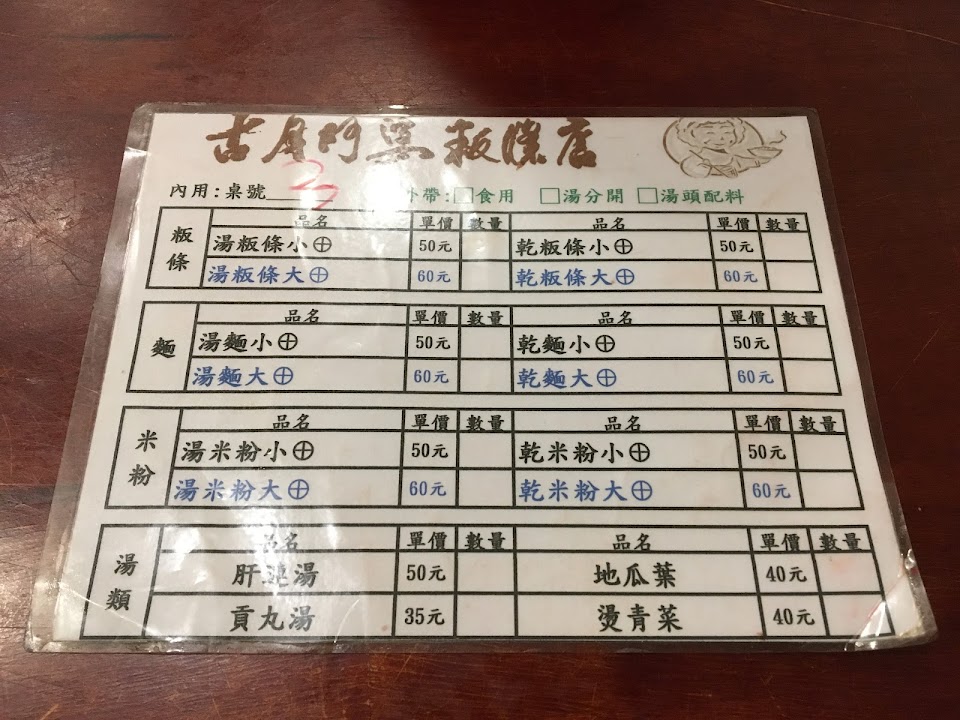 粄條店
內用:桌號 27 外帶:□食用 □湯分開 □湯頭配料
粄條
品名 單價 數量 品名 單價 數量
湯粄條小⊕ 50元 乾粄條小⊕ 50元
湯粄條大⊕ 60元 乾粄條大⊕ 60元
麵
品名 單價 數量 品名 單價 數量
湯麵小⊕ 50元 乾麵小⊕ 50元
湯麵大⊕ 60元 乾麵大⊕ 60元
米粉
品名 單價 數量 品名 單價 數量
湯米粉小⊕ 50元 乾米粉小⊕ 50元
湯米粉大⊕ 60元 乾米粉大⊕ 60元
湯類
品名 單價 數量 品名 單價 數量
肝連湯 50元 地瓜葉 40元
貢丸湯 35元 燙青菜 40元